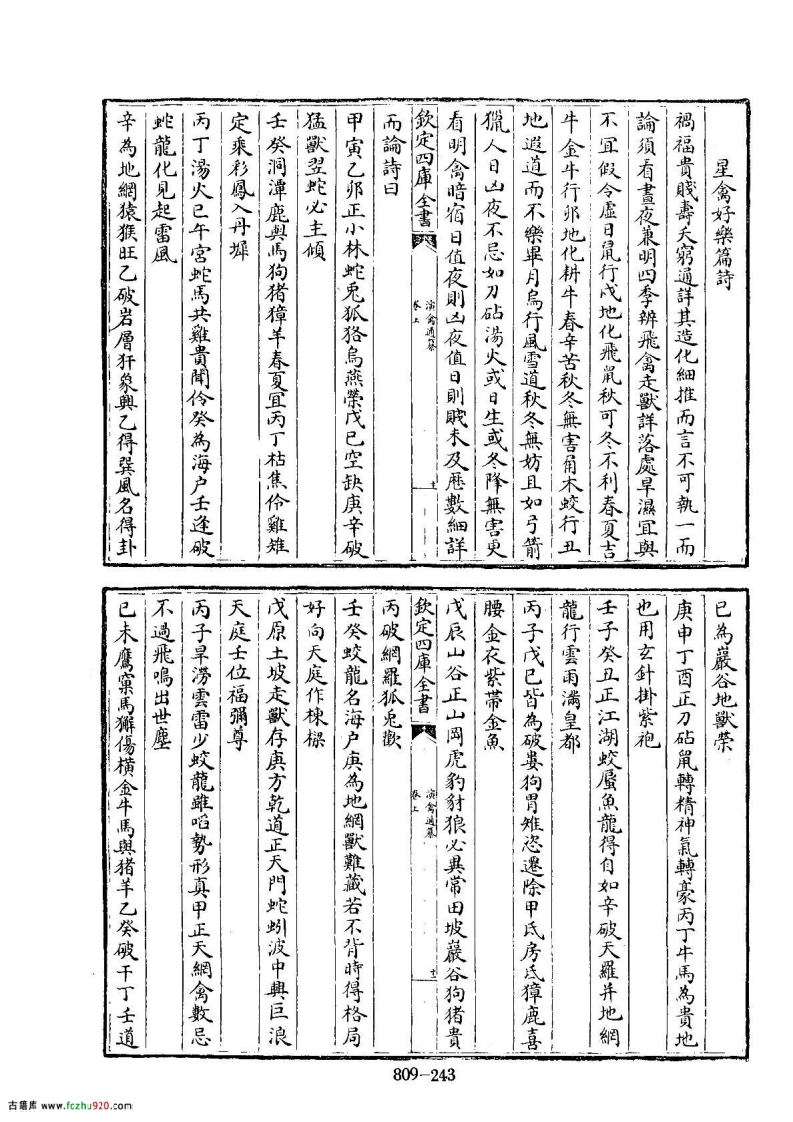 星禽好樂篇詩
禍福貴賤壽夭窮通詳其造化細推而言不可執一而
論須看晝夜兼明四季辨飛禽走獸詳落處旱濕宜與
不宜假令虛日鼠行戌地化飛鼠秋可冬不利春夏吉
牛金牛行卯地化耕牛春辛苦秋冬無害角木蛟行丑
地遐道而不樂畢月烏行風雪道秋冬無妨且如弓箭
獵人日凶夜不忌如刀砧湯火或日生或冬降無害更
看明禽暗宿日值夜則凶夜值日則賤未及厯數細詳
欽定四庫全書
演禽通纂
卷上
十
而論詩曰
甲寅乙卯正小林蛇兎狐狢烏燕榮戊已空缺庚辛破
猛獸翌蛇必主傾
壬癸洞潭鹿與馬狗猪獐羊春夏宜丙丁枯焦伶雞雉
定乘彩鳳入丹墀
丙丁湯火已午宮蛇馬共雞貴聞伶癸為海户壬逢破
蛇龍化見起雷風
辛為地網猿猴旺乙破岩層犴象興乙得巽風名得卦
已為巖谷地獸榮
庚申丁酉正刀砧鼠轉精神氣轉豪丙丁牛馬為貴地
也用玄針掛紫袍
壬子癸丑正江湖蛟蜃魚龍得自如辛破天羅并地網
龍行雲雨滿皇都
丙子戊已皆為破婁狗胃雉恣遷除甲氐房氐獐鹿喜
腰金衣紫帶金魚
戊辰山谷正山岡虎豹豺狼必異常田坡巖谷狗猪貴
欽定四庫全書
演禽通纂
卷上
十
丙破網羅狐兎歡
壬癸蛟龍名海户庚為地網獸難藏若不背時得格局
好向天庭作棟樑
戊原土坡走獸存庚方乾道正天門蛇蚓波中興巨浪
天庭壬位福彌尊
丙子旱澇雲雷少蛟龍雖㗖勢形真甲正天網禽數忌
不過飛鳴出世塵
已未鷹窠馬獬傷横金牛馬與猪羊乙癸破干丁壬道
809-243
古籍库 www.fczhu920.com